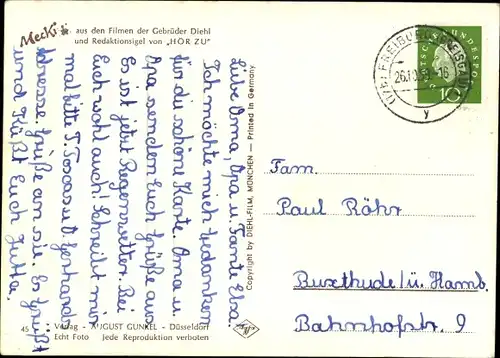 Mecki
aus den Filmen der Gebrüder Diehl
und Redaktionsigel von „HÖR ZU"
Liebe Oma, Opa u. Tante Elsa
Ich möchte mich bedanken
für die schöne Karte. Oma u.
Opa senden Euch Grüße aus
Es ist jetzt Regenwetter. Bei
Euch wohl auch! Schreibt mir
mal bitt T. u. O. Gerhards
Adresse Grüße an sie. Es grüßt
und küßt Euch Jutta.
Copyright by DIEHL-FILM, MÜNCHEN — Printed in Germany
45
Verlag - AUGUST GUNKEL - Düsseldorf
Echt Foto Jede Reproduktion verboten
(17b) FREIBURG (BREISGAU)
26.10.59-16
y
DEUTSCHE BUNDESPOST
10
Fam.
Paul Röhr
Buxthude/ü. Hamb.
Bahnhofstr. 9